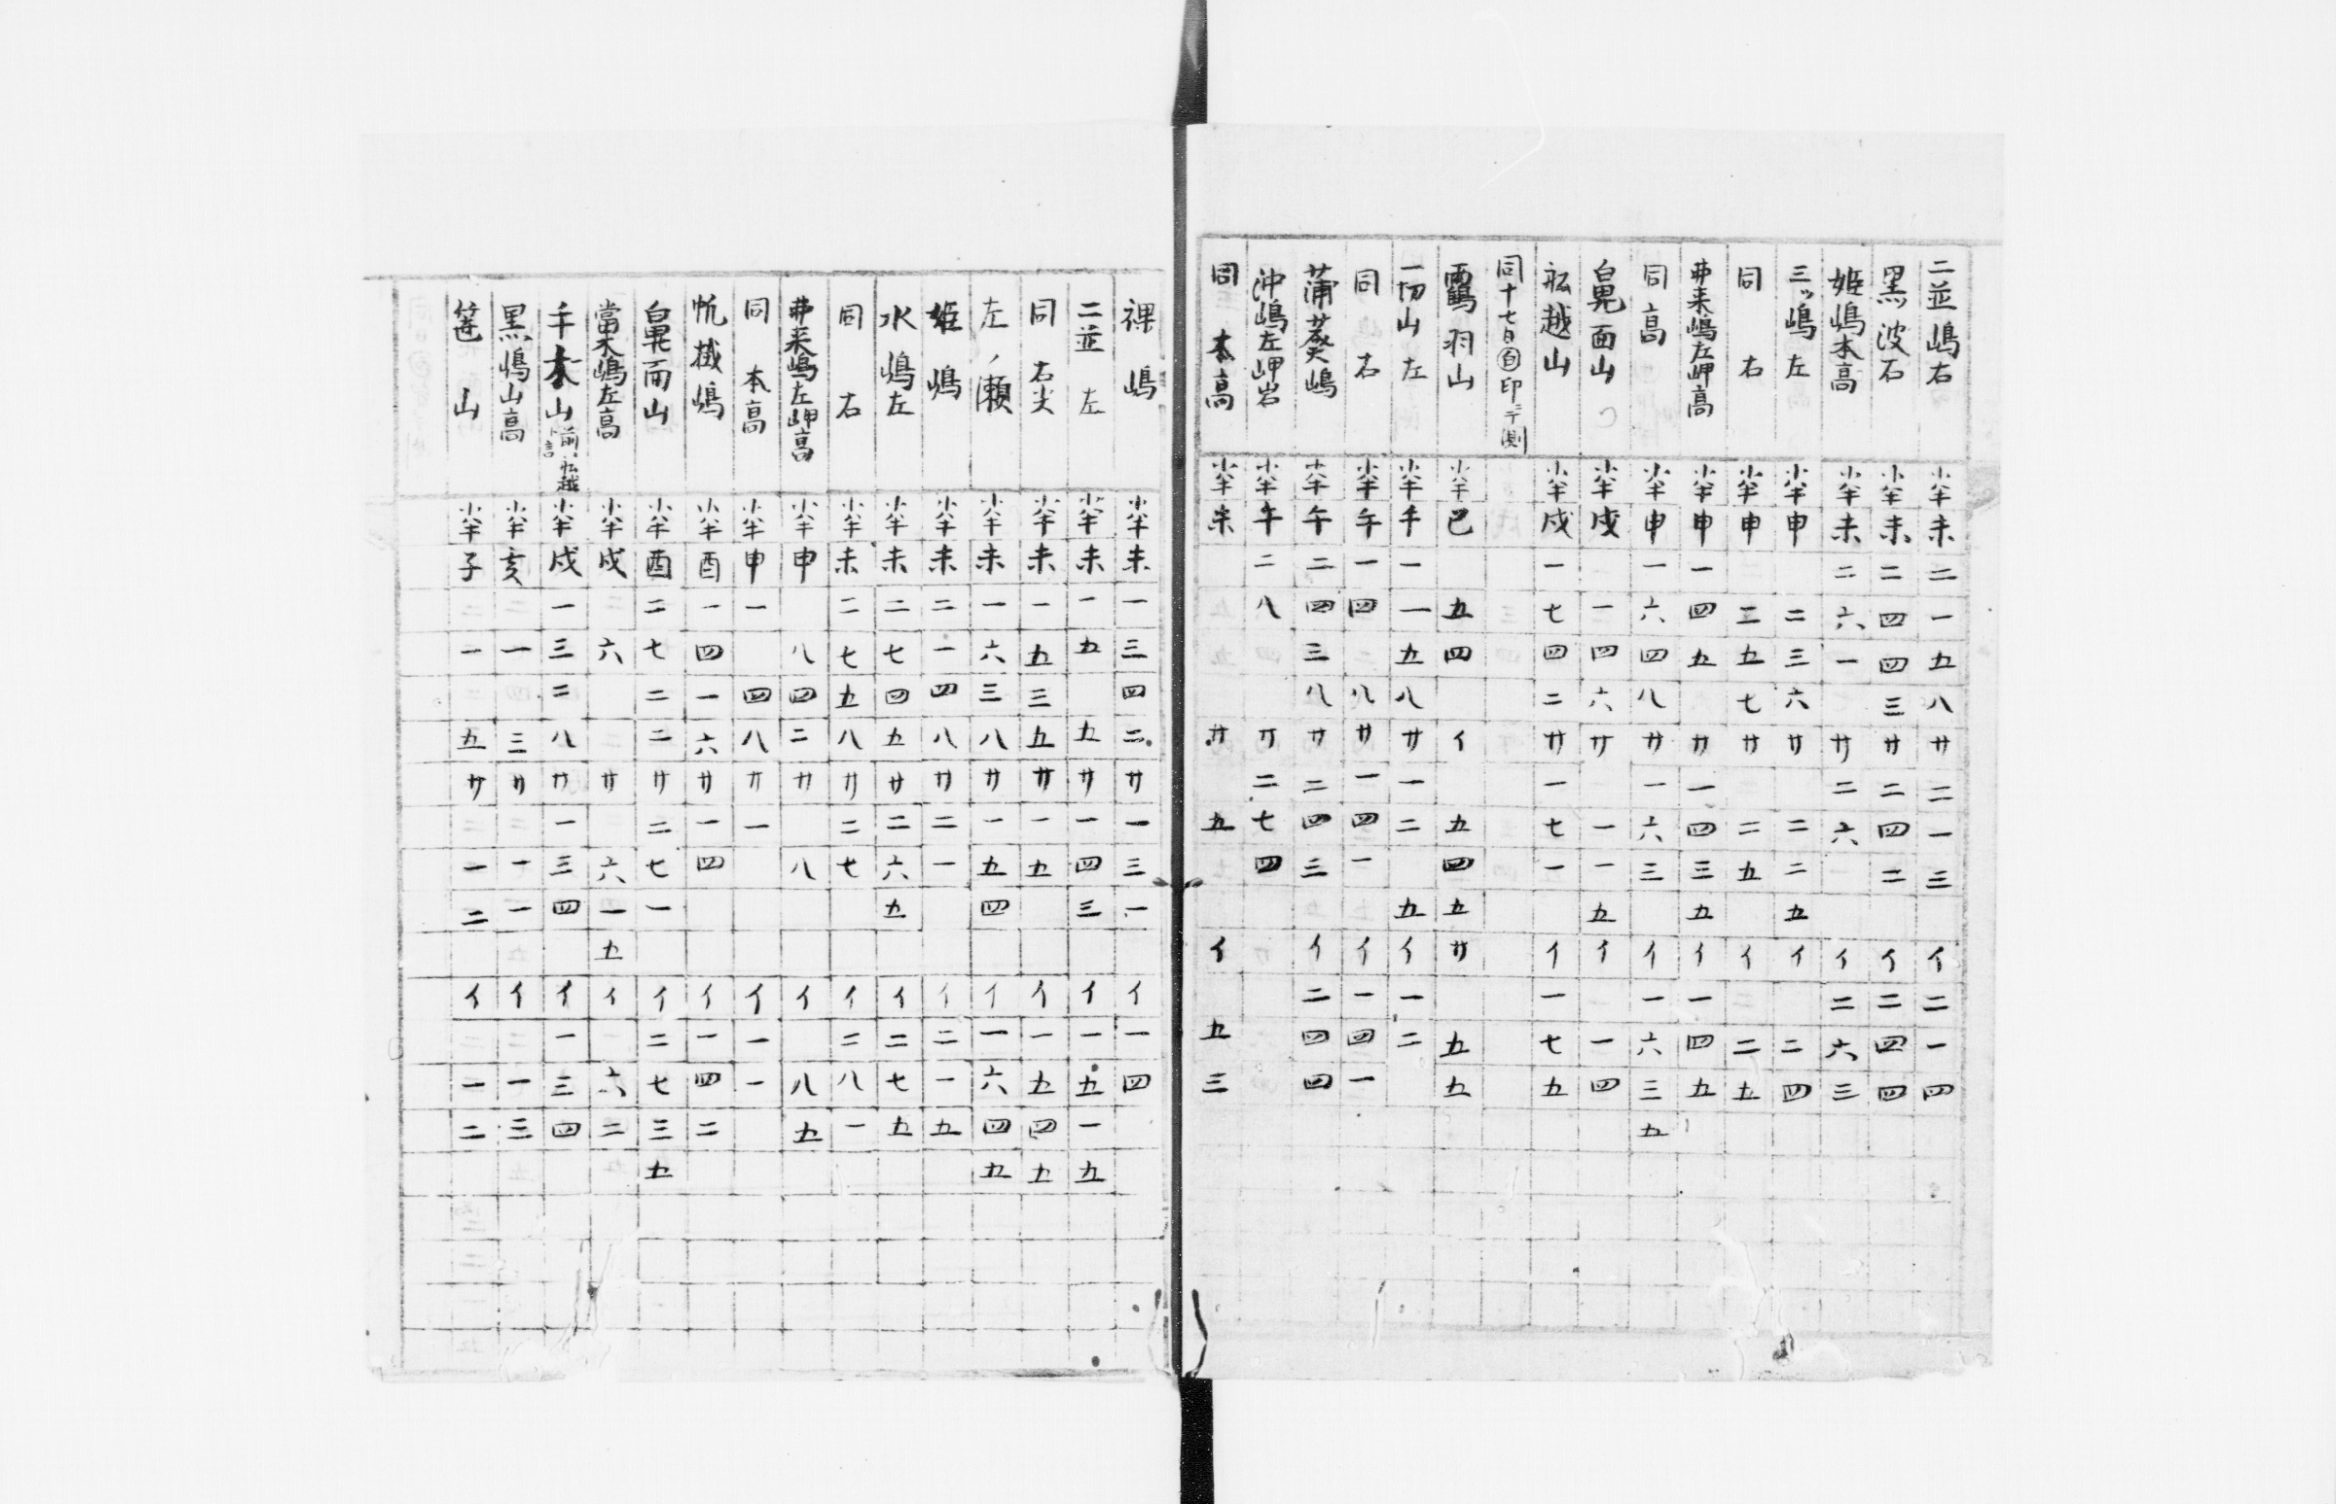 二並嶋右 小半未二一五八 サ二一三 イ二一四
黒波石 小半未二四四三 サ二四二 イ二四四
姫嶋本高 小半未二六一 サ二六 イ二六三
三ッ嶋左 小半申二三六 サ二二五 イ二四
同右 小半申二五七 サ二五 イ二五
弗来嶋左岬高 小半申一四五 サ一四三五 イ一四五
同高 小半申一六四八 サ一六三 イ一六三五
白晃面山 小半戌一四六 サ一一五 イ一四
舩越山 小半戌一七四二 サ一七一 イ一七五
同十七日㊐印ニテ測
羽山 小半巳五四 イ五四五 サ五五
一切山左 小半午一一五八 サ一二五 イ一二
同右 小半午一四八 サ一四一 イ一四一
蒲葵嶋 小半午二四三八 サ二四三 イ二四四
沖嶋左岬岩 小半午二八 サ二七四
同本高 小半未 サ五 イ五三
裸嶋 小半未一三四二 サ一三一 イ一四
二並左 小半未一五五 サ一四三 イ一五一五
同右尖 小半未一五三五 サ一五 イ一五四五
左ノ瀬 小半未一六三八 サ一五四 イ一六四五
姫嶋 小半未二一四八 サ二一 イ二一五
水嶋左 小半未二七四五 サ二六五 イ二七五
同右 小半未二七五八 サ二七 イ二八一
弗来嶋左岬高 小半申八四二 サ八 イ八五
同本高 小半申一四八 サ一 イ一一
帆掛嶋 小半酉一四一六 サ一四 イ一四二
白晃面山 小半酉二七二二 サ二七一 イ二七三五
當木嶋左高 小半戌六 サ六一五 イ六二
千本山 前ニ舩越ト言 小半戌一三二八 サ一三四 イ一三四
黒嶋山高 小半亥一三 サ一一 イ一三
山 小半子一五 サ一二 イ一二